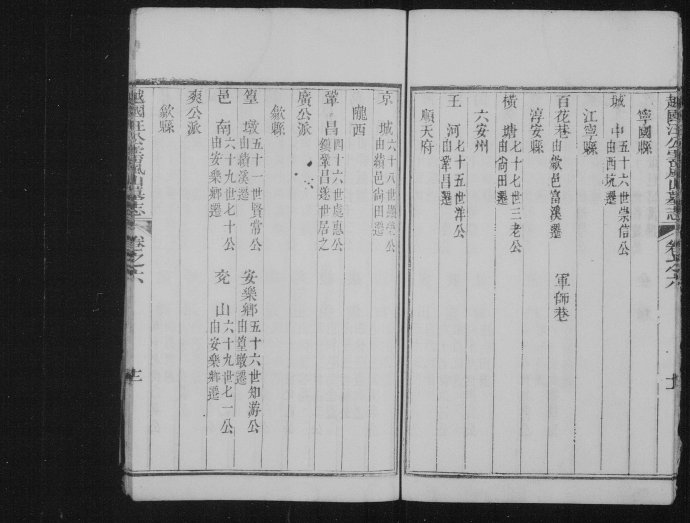 越國汪公雲嵐山墓志 卷之六
寧國縣
城中 五十六世崇信公
由西坑遷
江寧縣
百花巷 由歙邑富溪遷 軍師巷
淳安縣
橫塘 七十七世三老公
由尚田遷
六安州
王河 七十五世洋公
由鞏昌遷
順天府
京城 六十八世
由績邑尚田遷
隴西
鞏昌 四十六世處惠公
鎮鞏昌遂世居之
廣公派
歙縣
篁墩 五十一世賢常公
由績溪遷
安樂鄉 五十六世知游公
由篁墩遷
邑南 六十九世七十公
由安樂鄉遷
兗山 六十九世七一公
由安樂鄉遷
爽公派
歙縣
越國汪公雲嵐山墓志 卷之六